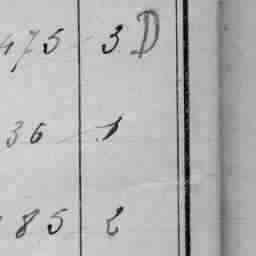 475 3 D
36 1
85 2